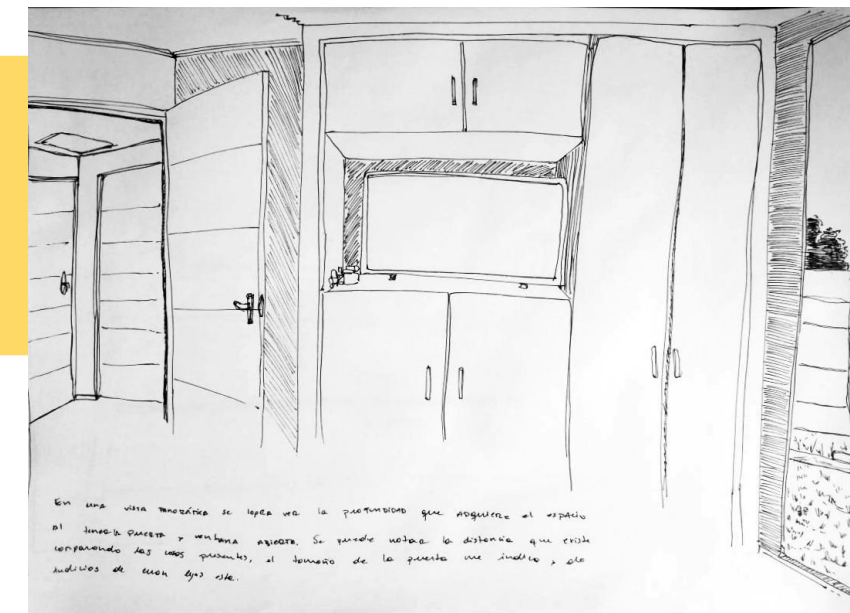 En una vista panorámica se logra ver la profundidad que adquiere el espacio
al tener la puerta y ventana abierta. Se puede notar la distancia que existe
comparando las cosas presentes, el tamaño de la puerta me indica y da
indicios de cuan lejos esta.